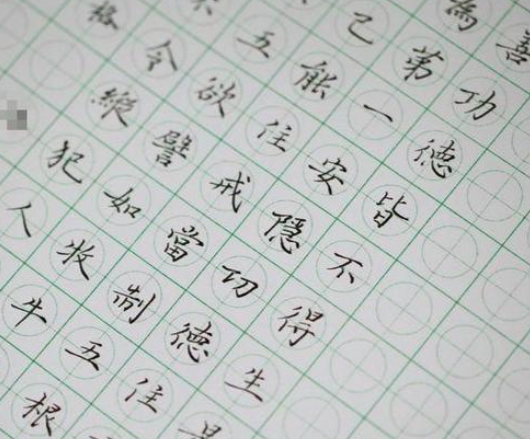 善功德皆不得生是
為苐一安隱功德住
己能住戒當制五根
五欲譬如牧牛
不令縱犯人